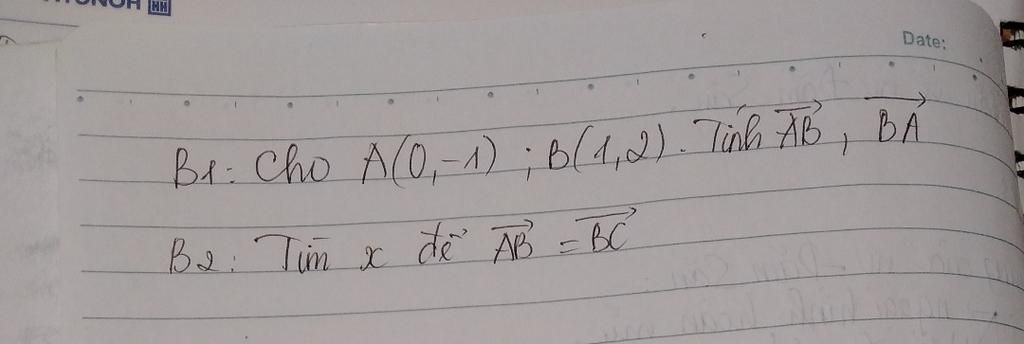 Date:
B1: Cho A(0,-1) ; B(1,2). Tính \overrightarrow{AB}, \overrightarrow{BA}
B2: Tìm x để \overrightarrow{AB} = \overrightarrow{BC}